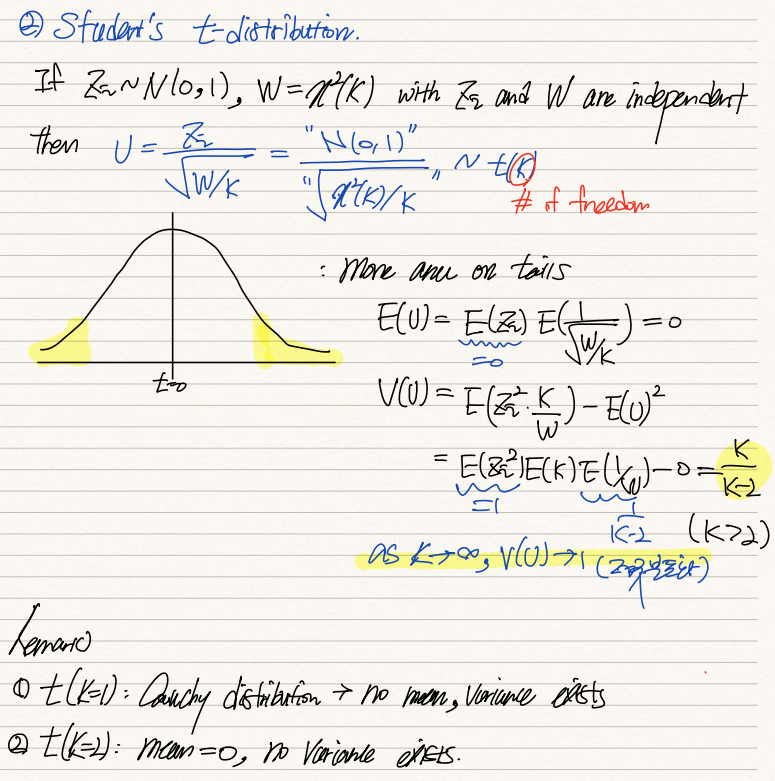 ② Student's t-distribution.
If Z ~ N(0,1), W = χ²(K) with Z and W are independent
then U = Z / √(W/K) = "N(0,1)" / "√(χ²(K)/K)" ~ t(K)
# of freedom
: More area on tails
t=0
E(U) = E(Z) E(1/√(W/K)) = 0
=0
V(U) = E(Z²·K/W) - E(U)²
= E(Z²)E(K)E(1/W) - 0 = K/(K-2)
=1 1/(K-2) (K>2)
as K→∞, V(U)→1
Remark
① t(K=1): Cauchy distribution → no mean, variance exists
② t(K=2): mean=0, no variance exists.